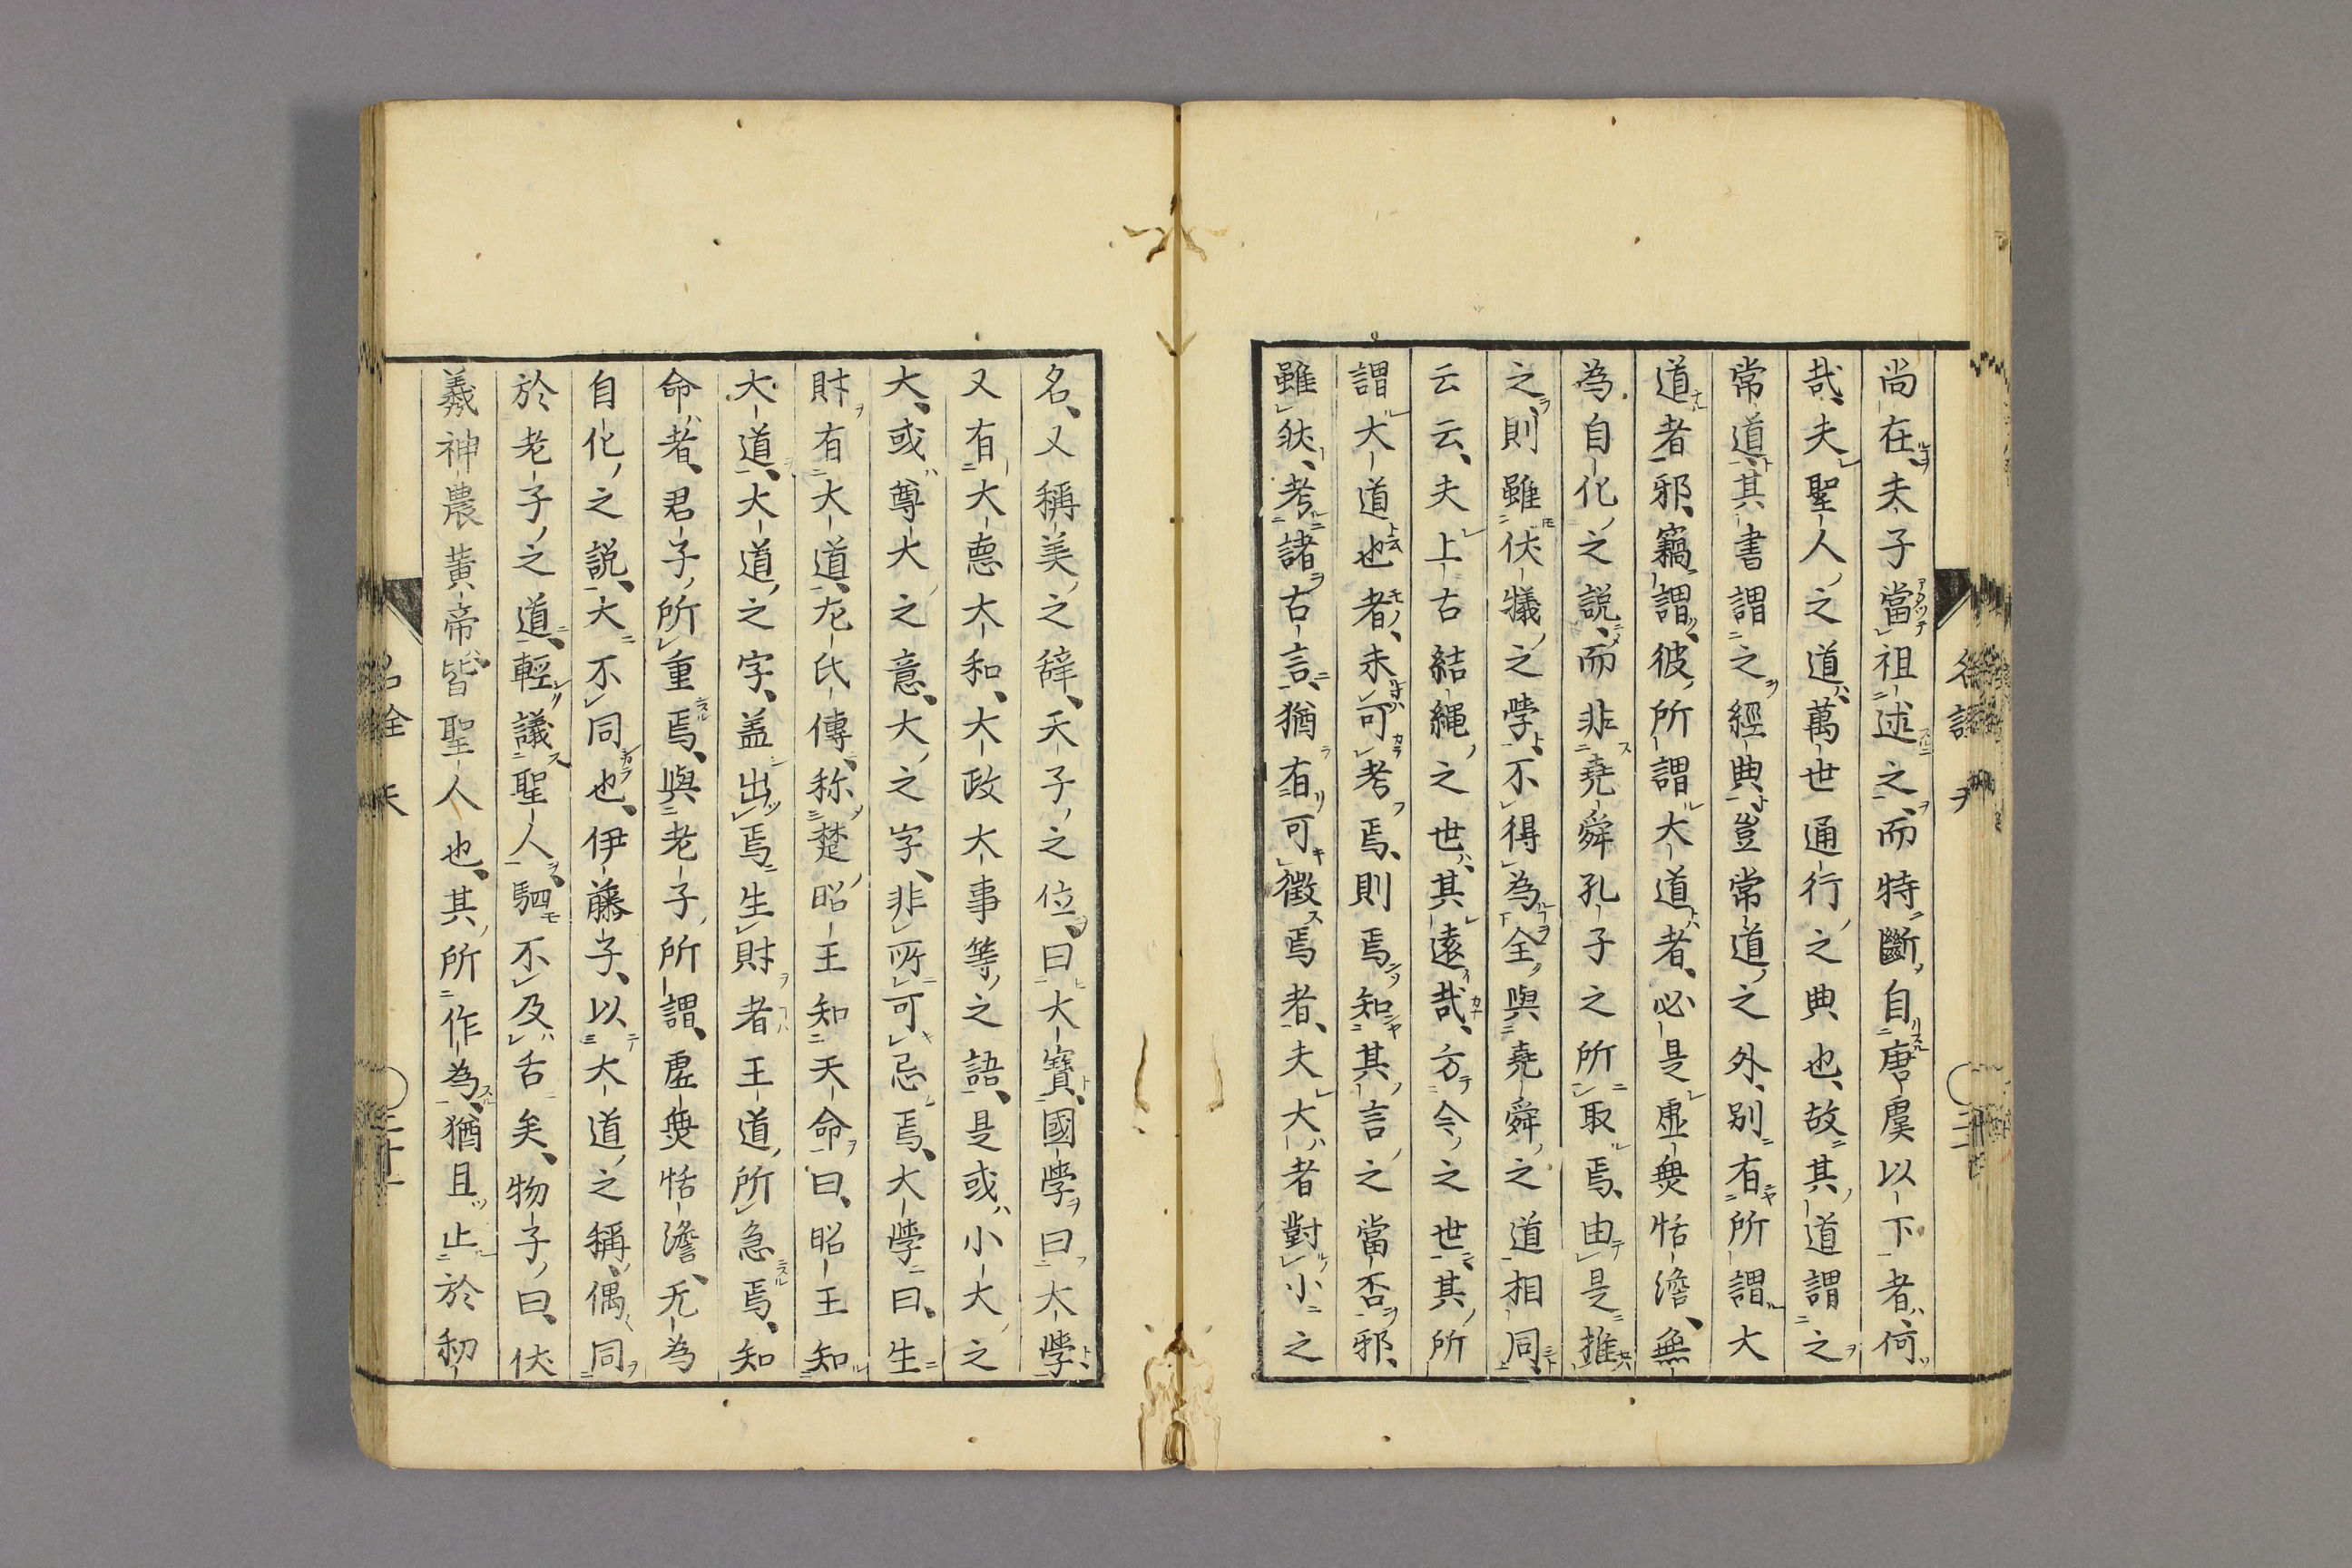 尚在、夫子當祖述之、而特斷自唐虞以下者、何
哉、夫聖人之道、萬世通行之典也、故其道謂之
常道、其書謂之經典、豈常道之外、别有所謂大
道者邪、竊謂、彼所謂大道者、必是虚無恬澹、無
為自化之説、而非堯舜孔子之所取焉、由是推
之、則雖伏犠之學、不得為全與堯舜之道相同、
云云、夫上古結繩之世、其遠哉、方今之世、其所
謂大道也者、未可考焉、則焉知其言之當否邪、
雖然、考諸古言、猶有可徴焉者、夫大者對小之
名、又稱美之辞、天子之位、曰大寳、國學曰大學、
又有大悳大和、大政大事等之語、是或小大之
大、或尊大之意、大之字、非所可忌焉、大學曰、生
財有大道、左氏傳、称楚昭王知天命曰、昭王知
大道、大道之字、盖出焉、生財者王道所急焉、知
命者、君子所重焉、與老子所謂、虚無恬澹、无為
自化之説、大不同也、伊藤子、以大道之稱、偶同
於老子之道、輕議聖人、駟不及舌矣、物子曰、伏
羲神農黄帝皆聖人也、其所作為、猶且止於利